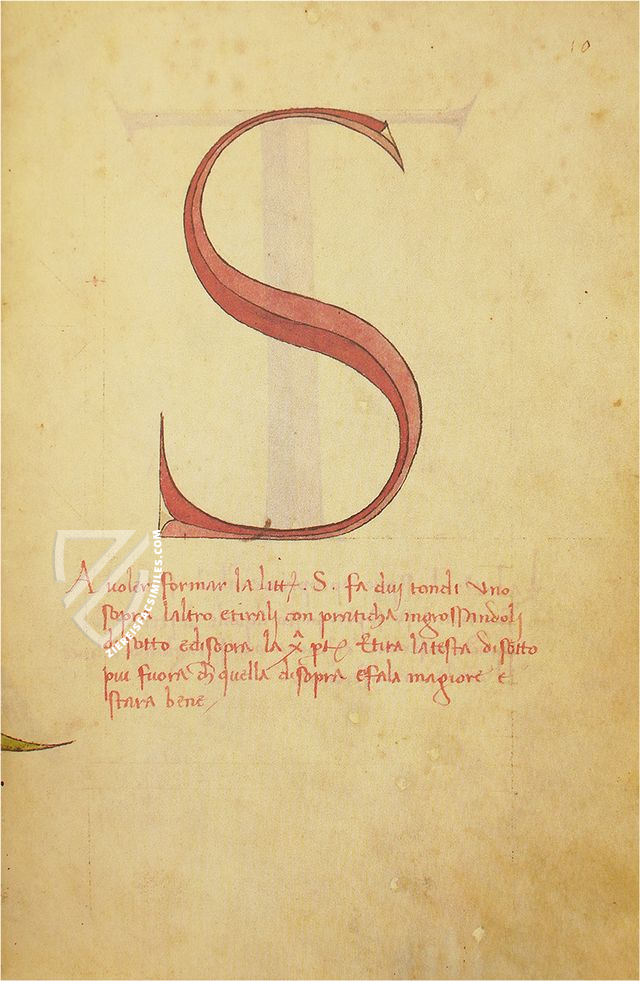 10
S
A voler formar la litt̃. S. fa dui tondi uno
sopra laltro e tirali con praticha ingrossandoli
di sotto e disopra la x̂ pt̃ Et tira la testa di sotto
piu fuora ch̃ quella disopra e fala magiore e
stara bene
ZIEREISFACSIMILES.COM